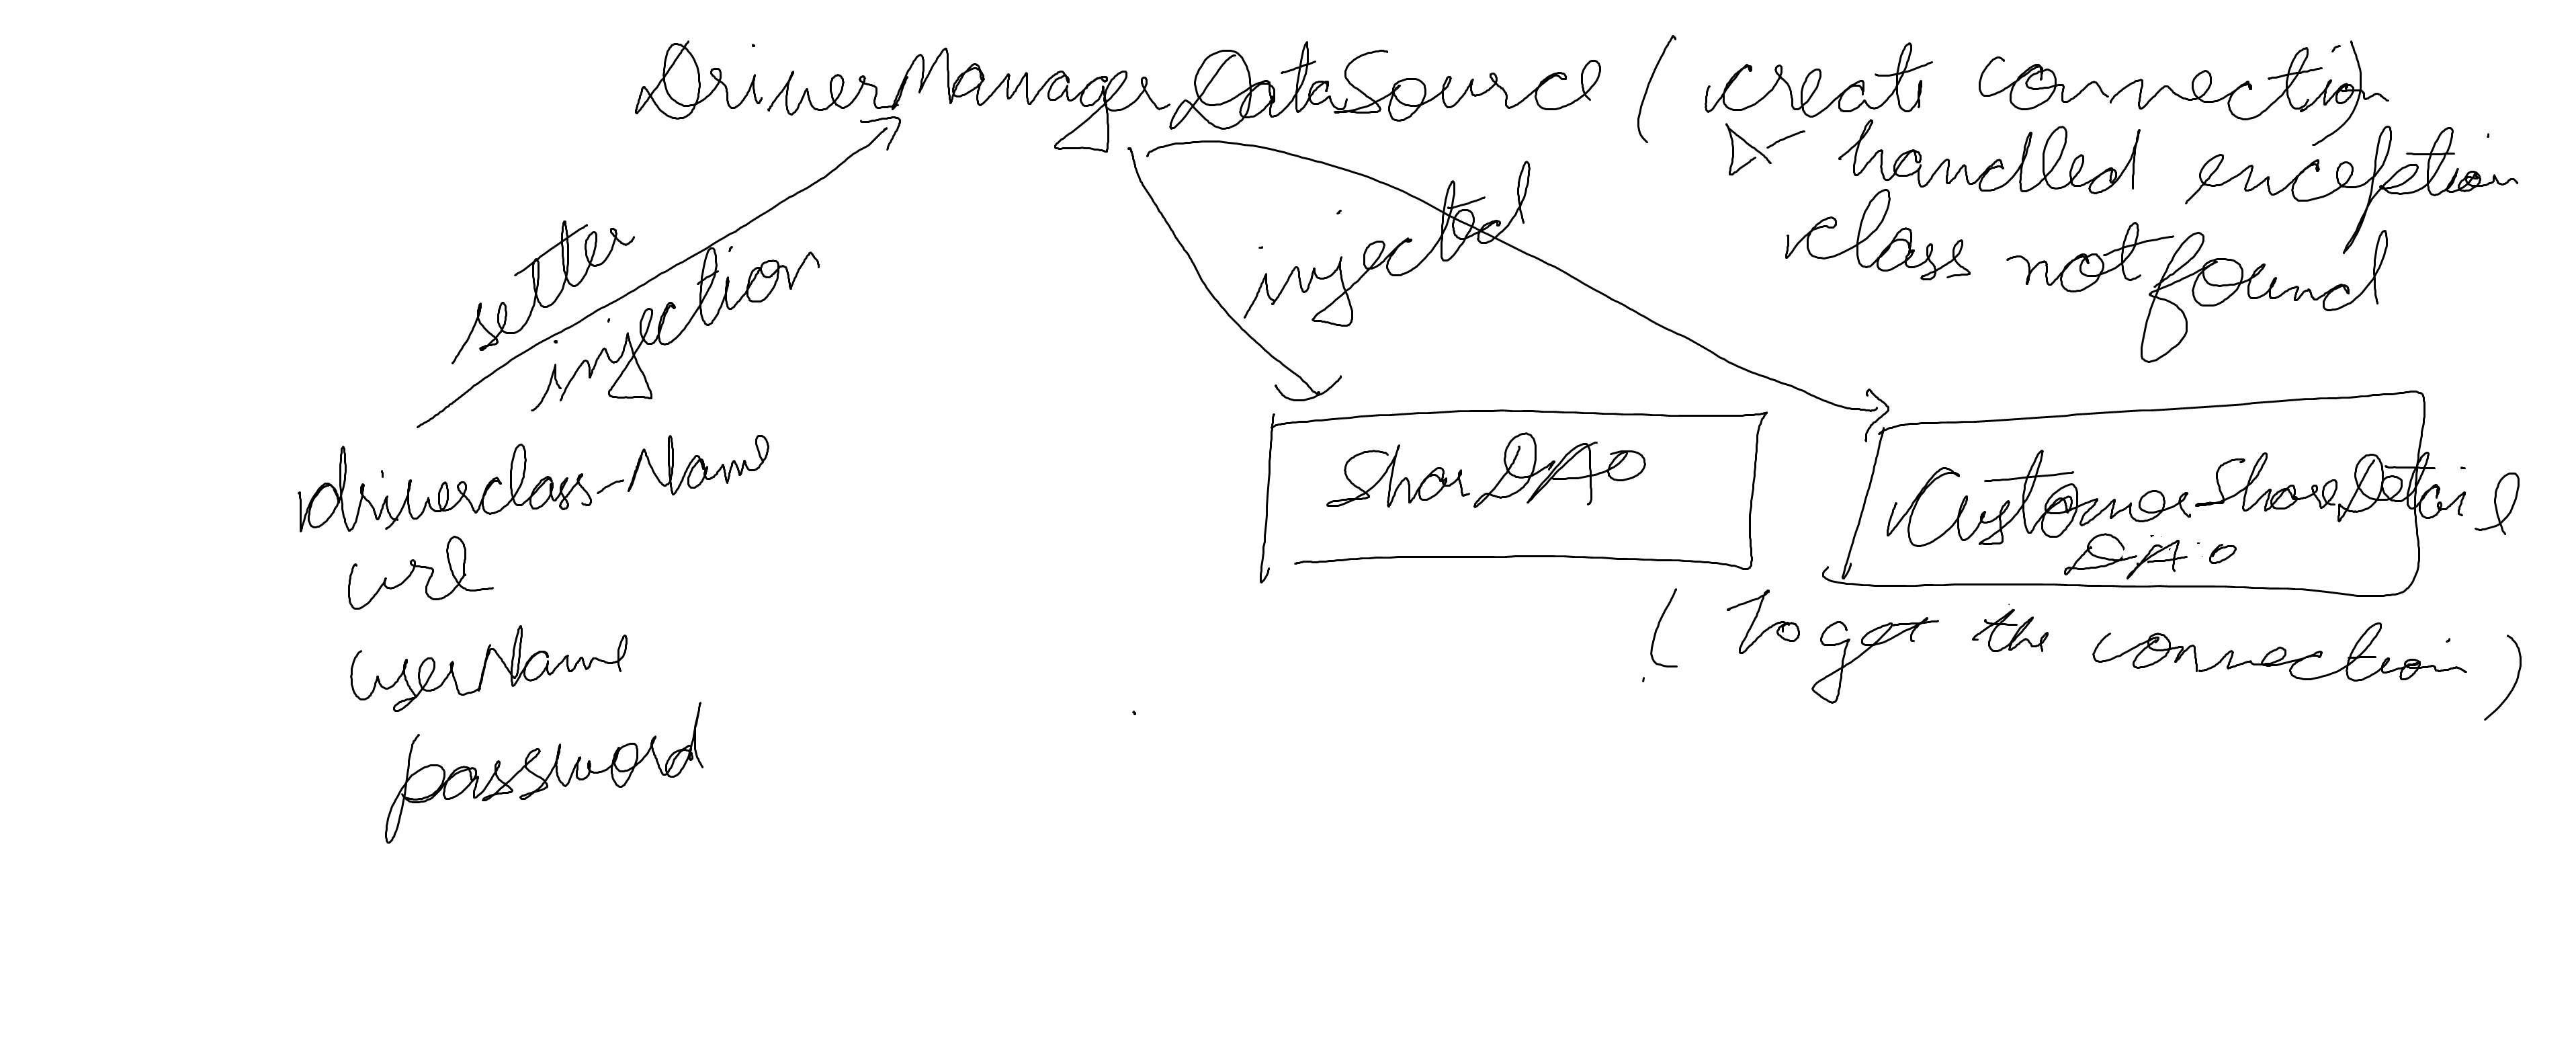 DriverManagerDataSource ( create connection)
& handled exception
class not found
setter
injection
injected
driverclass-Name
url
userName
password
SharDAO
CustomerShareDetail
DAO
( To get the connection )